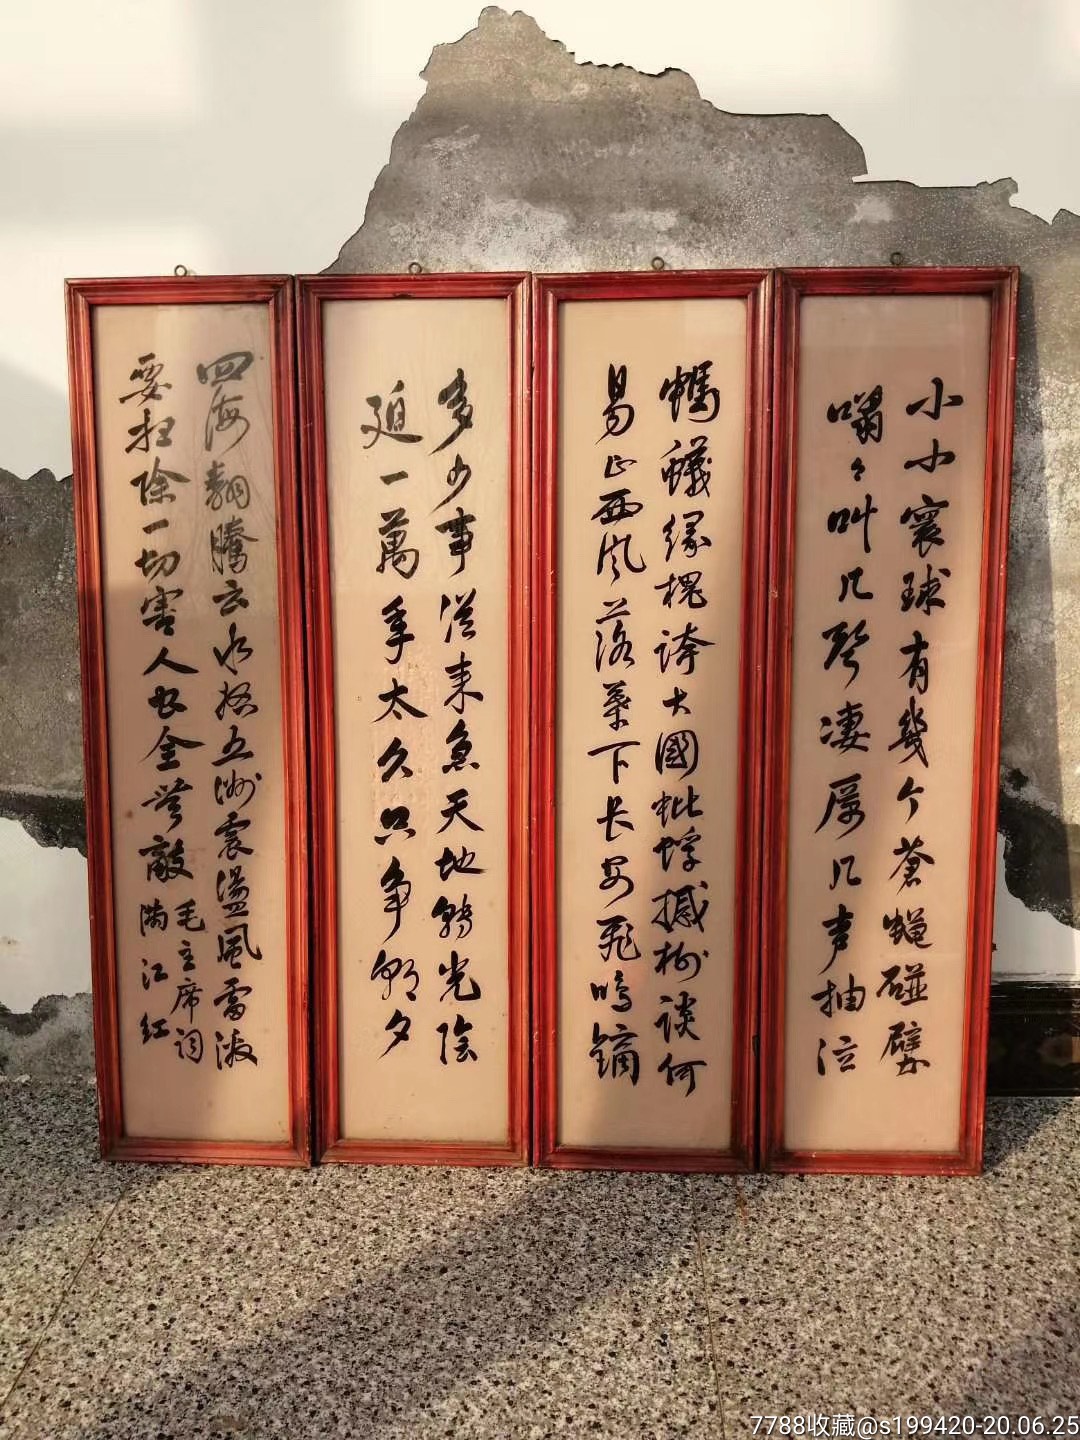 小小寰球有幾个蒼蝇碰壁
嗡々叫几声凄厉几声抽泣
螞蟻缘槐誇大國蚍蜉撼树談何
易正西风落葉下长安飛鳴鏑
多少事從来急天地轉光陰
迫一萬年太久只争朝夕
四海翻騰云水怒五洲震盪風雷激
要扫除一切害人虫全无敵
毛主席詞
满江红
7788收藏@s199420-20.06.25